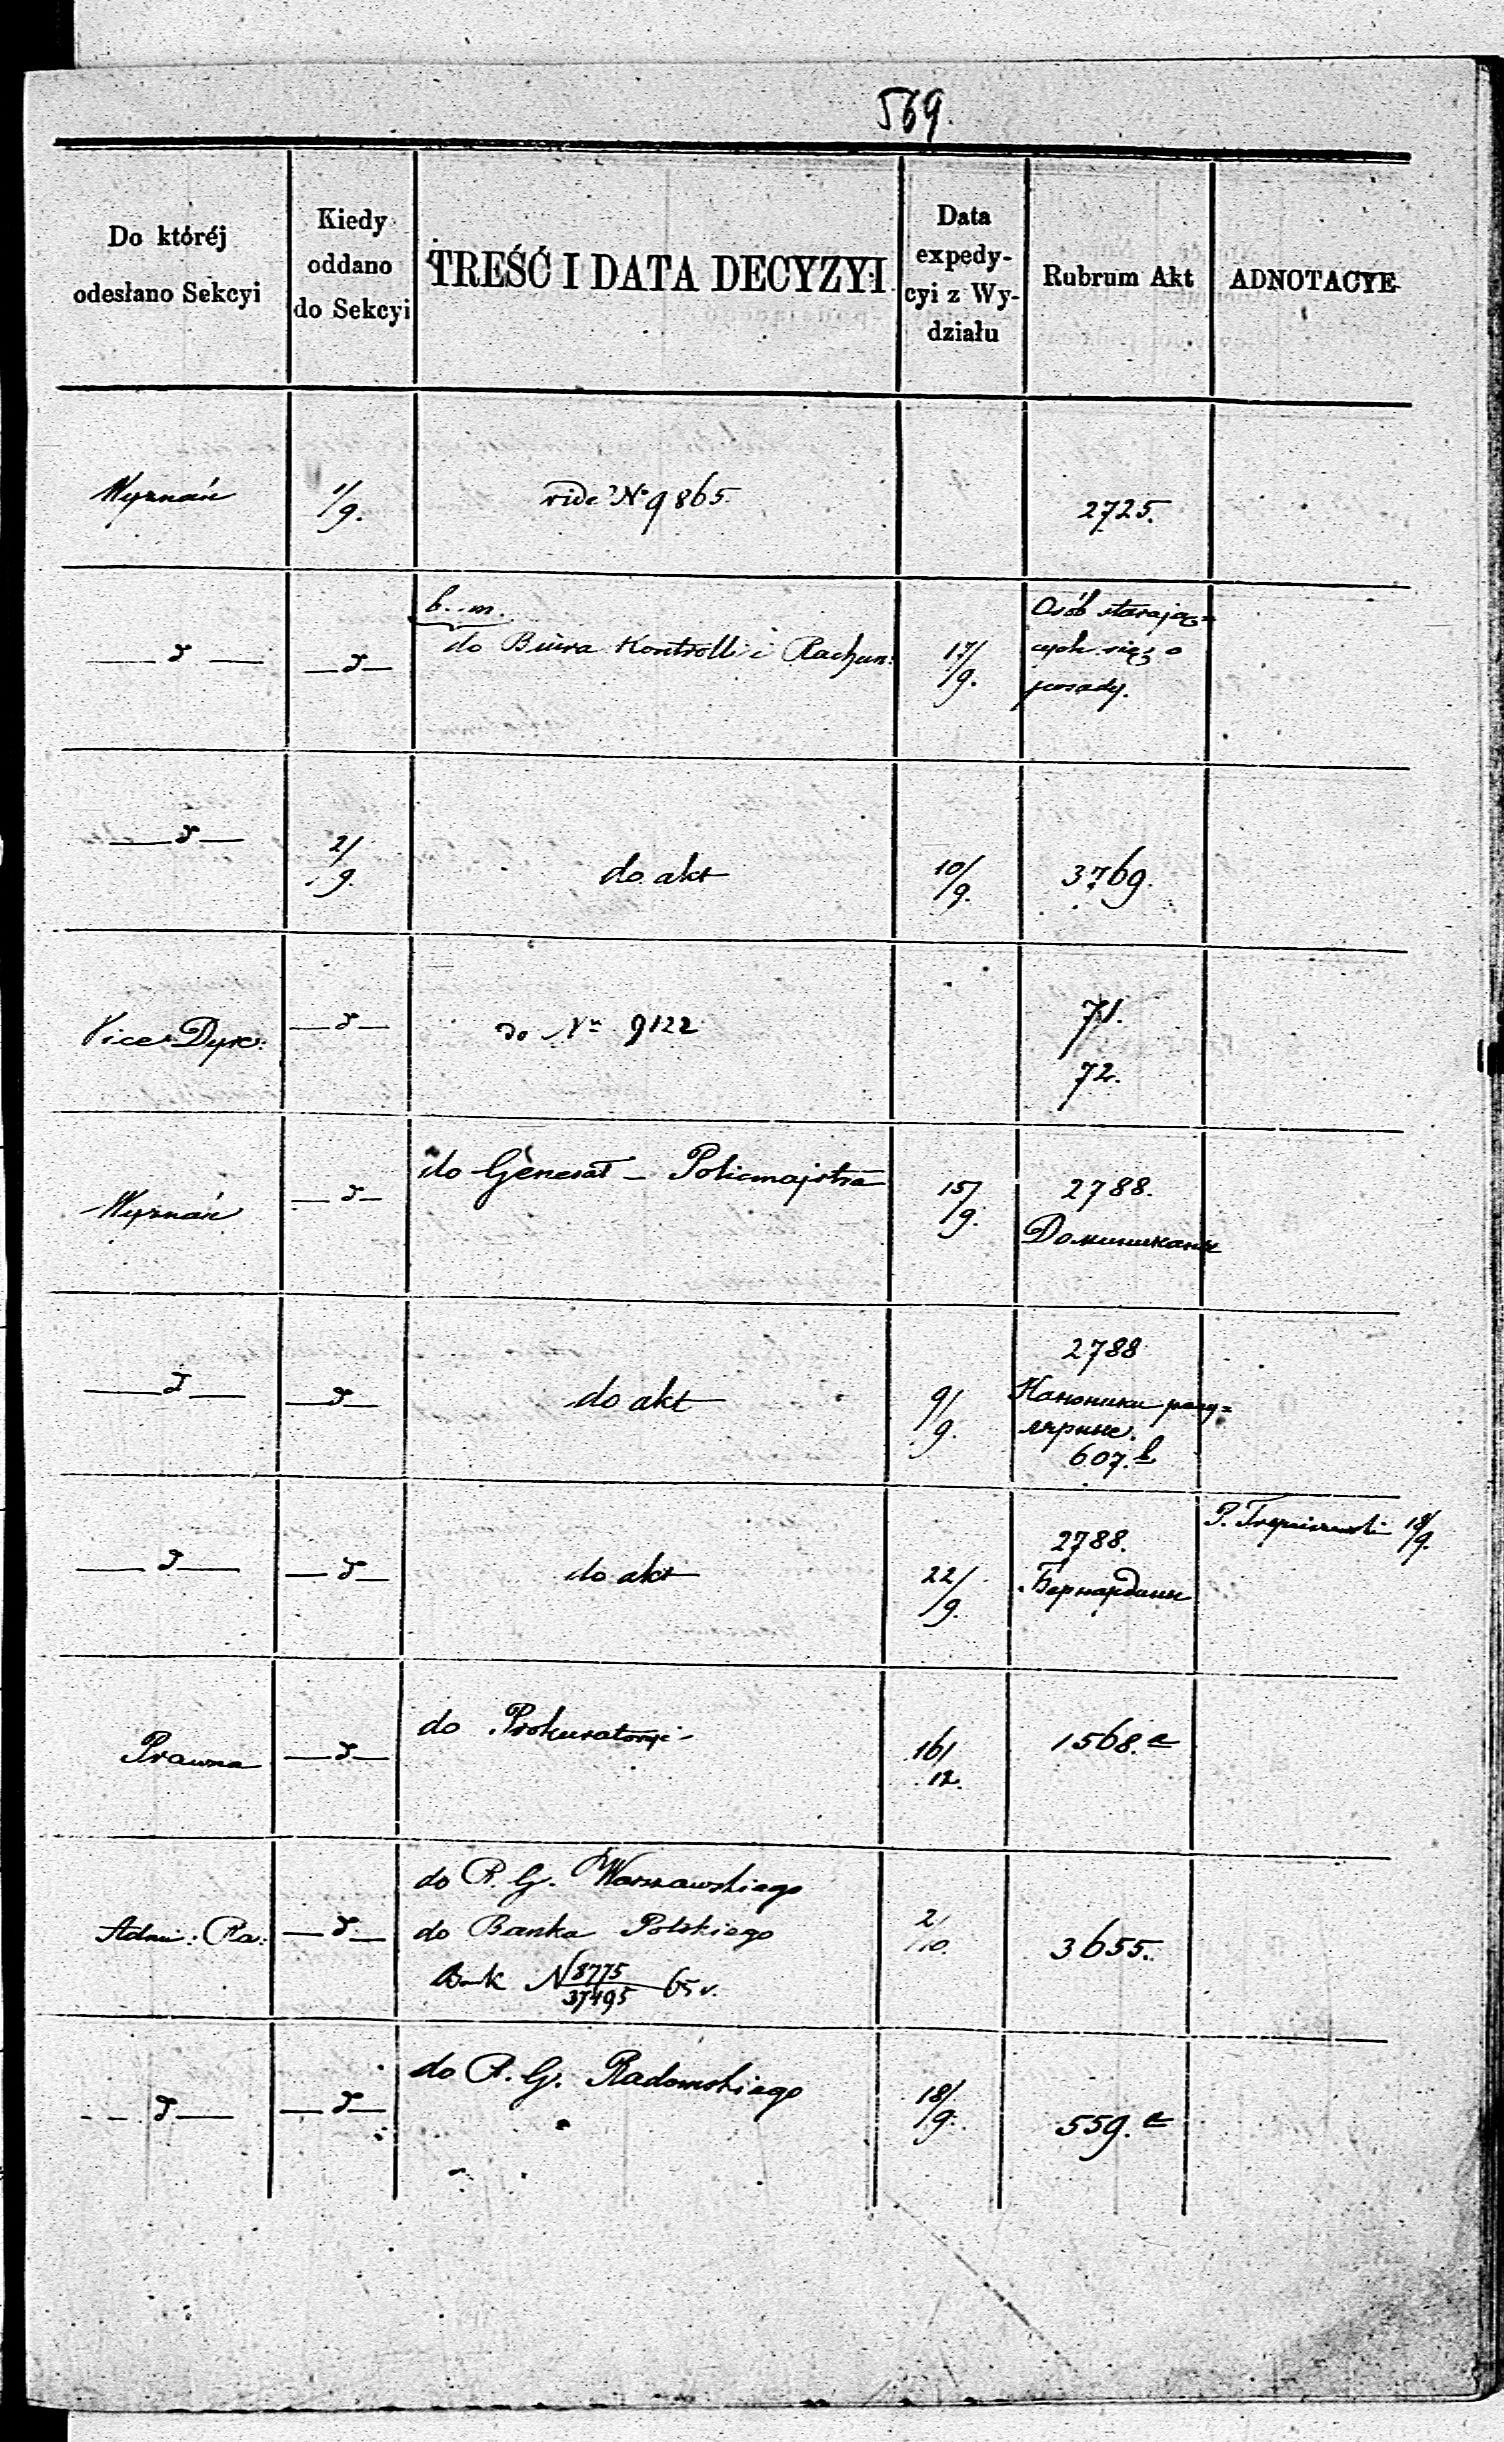 569.
Do któréj odesłano Sekcyi
Kiedy oddano do Sekcyi
TREŚĆ I DATA DECYZYI
Data expedy- cyi z Wy- działu
Rubrum Akt
ADNOTACYE
Wyznań
1/9.
vide N° 9865.
2725.
b. m.
do Biura Kontrolli i Rachun:
17/9.
Osób starają=
cych się o
posady.
2/9.
do akt
10/9.
3769.
Vice Dyre:
do N° 9122
71.
72.
Wyznań
do Generał - Policmajstra
15/9.
2788.
Доминикане
do akt
9/9.
2788
Каноники регу=
лярные.
607. b
do akt
22/9.
2788.
Бернардины
P. 18/9.
Prawna
do Prokuratoryi
16/12.
1568. a
Admi: Ra:
do R. G. Warszawskiego
do Banku Polskiego
N 8775/37495 65 r.
2/10.
3655.
do R. G. Radomskiego
18/9.
559. a